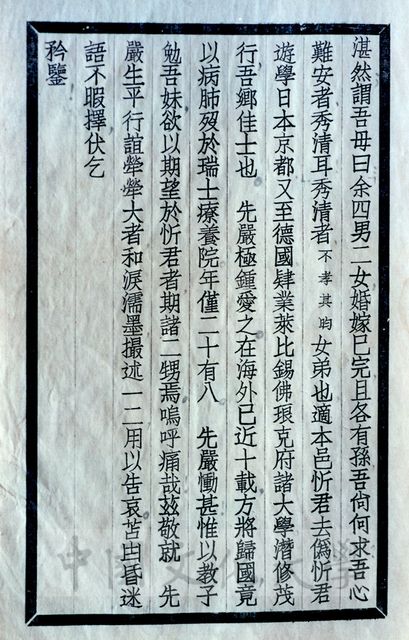 湛然謂吾母曰余四男二女婚嫁已完且各有孫吾尙何求吾心
難安者秀清耳秀清者不孝其昀女弟也適本邑忻君去僞忻君
遊學日本京都又至德國肄業萊比錫佛琅克府諸大學潛修茂
行吾鄉佳士也　先嚴極鍾愛之在海外已近十載方將歸國竟
以病肺歿於瑞士療養院年僅二十有八　先嚴慟甚惟以教子
勉吾妹欲以期望於忻君者期諸二甥焉嗚呼痛哉茲敬就　先
嚴生平行誼犖犖大者和淚濡墨撮述一二用以告哀苫甴昏迷
語不暇擇伏乞
矜鑒
中國文化大學